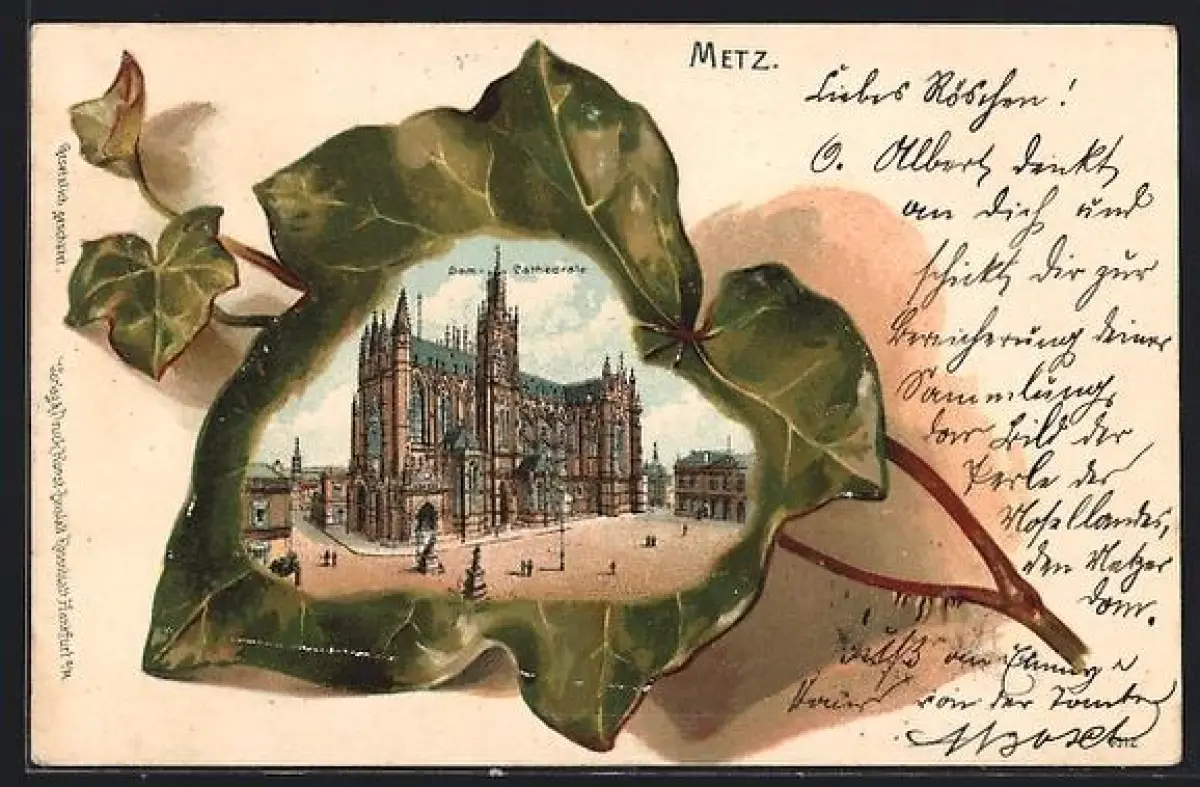 METZ.
Dom - Cathedrale
Liebes Röschen!
O. Albert denkt
an Dich und
schickt Dir zur
Bereicherung deiner
Sammlung,
das Bild der
Perle des
Mosellandes,
den Metzer
Dom.
Gruß an
von der Tante
Gesetzlich geschützt.
Frankfurt a/M